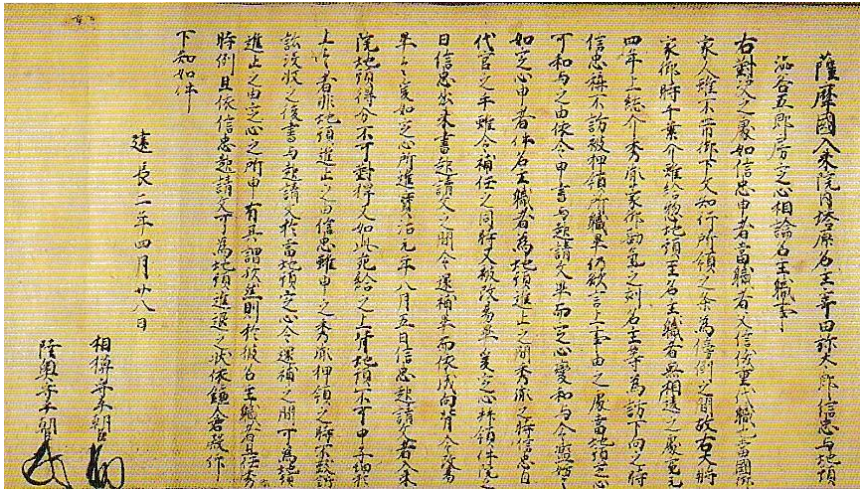 薩摩國入来院内塔原名主寄田弥太郎信忠与地頭
澁谷五郎房定心相論名主職事
右對决之處如信忠申者當職者父信俊重代職也當國御
家人雖不帯御下文知行所領之条為傍例之間故右大将
家御時千葉介雖給惣地頭至名主職者無相違之處寛元
四年上総介秀胤蒙御勘気之刻名主等為訪下向之時
信忠称不訪被押領所職畢仍欲言上事由之處當地頭定心
可和与之由依令申書与起請文畢而定心變和与令濫妨云々
如定心申者件名主職者為地頭進止之間秀胤之時信忠自
代官之手雖令補任之同時又被改易畢爰定心拝領件院之
日信忠出来書起請文之間令還補畢而依成向背令
畢云々爰如定心所進寶治元年八月五日信忠起請文者入来
院地頭得分不可對捍又如此宛給之上背地頭不可申子細於
上云々者非地頭進止之由信忠雖申之秀胤押領之時不致訴
訟没収之後書与起請文於當地頭定心令還補之間可為地頭
進止之由定心之所申有其謂歟然則於彼名主職者且任秀胤
時例且依信忠起請文可為地頭進退之状依鎌倉殿仰
下知如件
建長二年四月廿八日
相模守平朝臣
陸奥守平朝臣